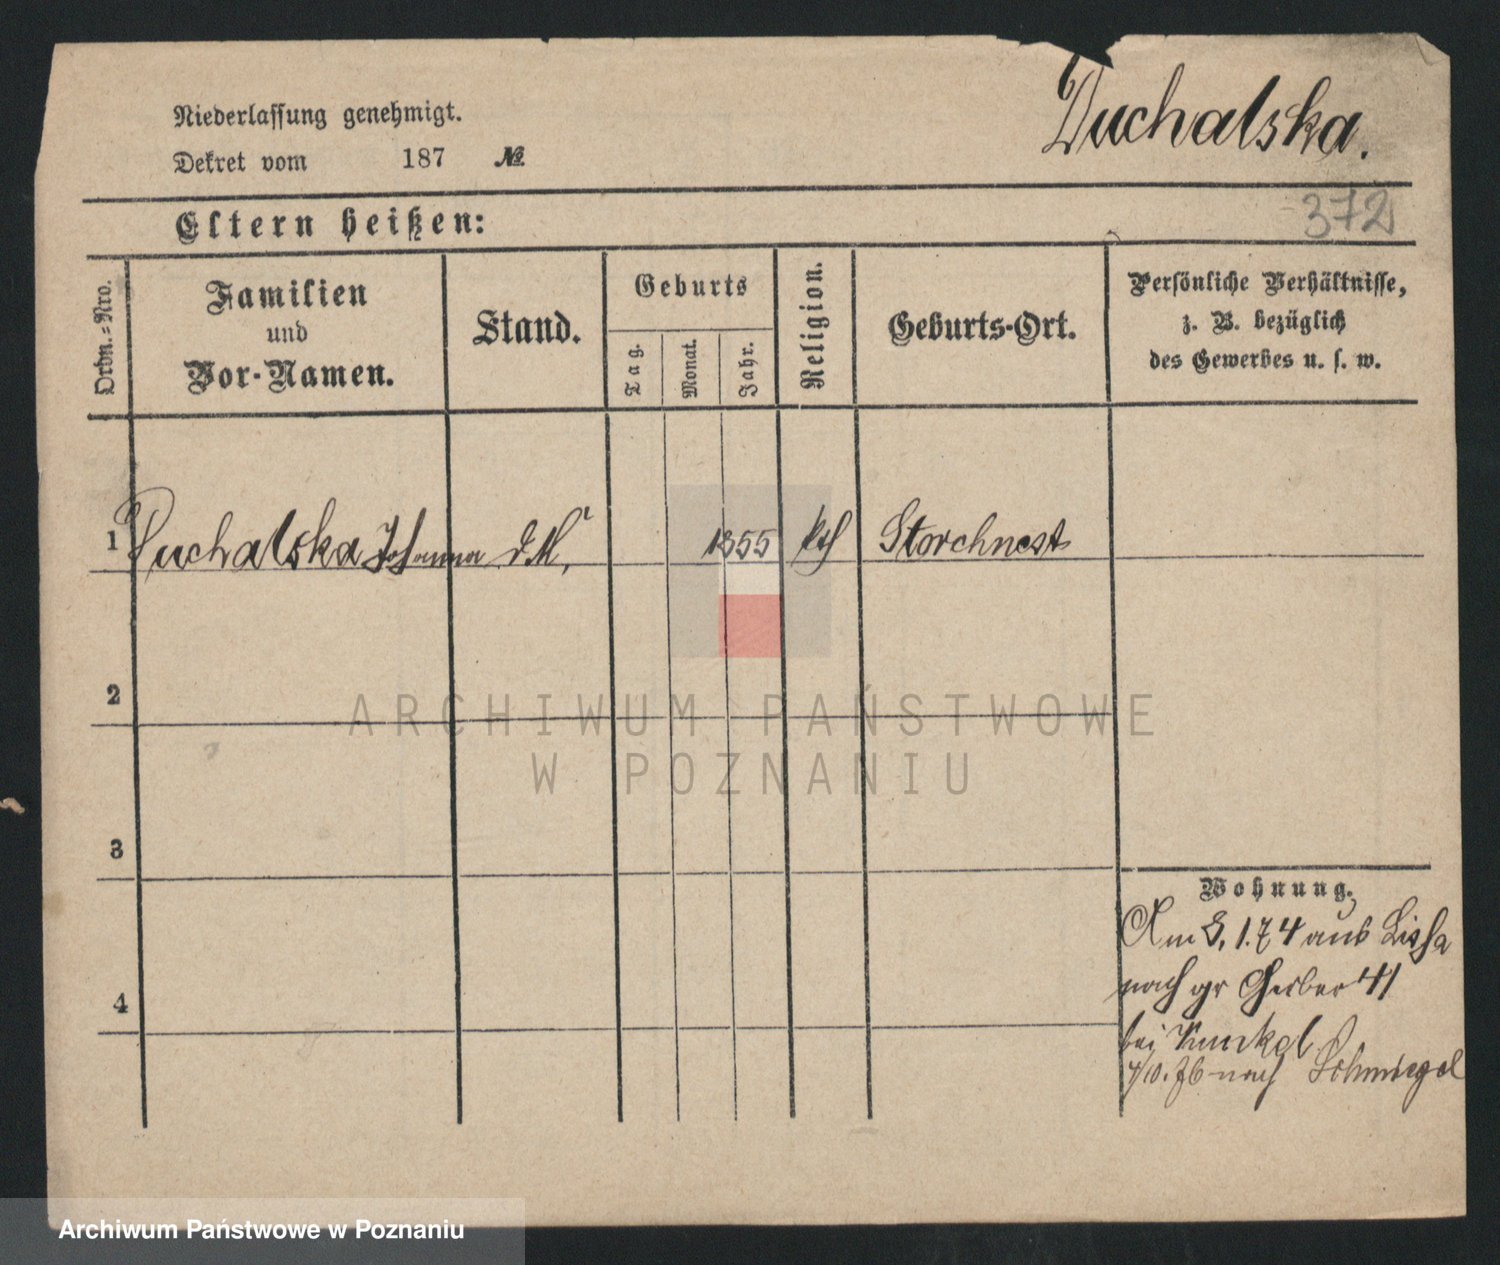 Niederlassung genehmigt.
Dekret vom 187 №
Puchalska.
372
Eltern heißen:
Ordn.-Nro.
Familien
und
Vor-Namen.
Stand.
Geburts
Tag.
Monat.
Jahr.
Religion.
Geburts-Ort.
Persönliche Verhältnisse,
z. B. bezüglich
des Gewerbes u. s. w.
1 Puchalska Johanna d.M. 1855 kth Storchnest
2
3
4
Wohnung.
Am 8.1.74 aus Lissa
nach gr Gerber 41
bei Kunkel
4/10.76 nach Schmiegel
ARCHIWUM PAŃSTWOWE
W POZNANIU
Archiwum Państwowe w Poznaniu